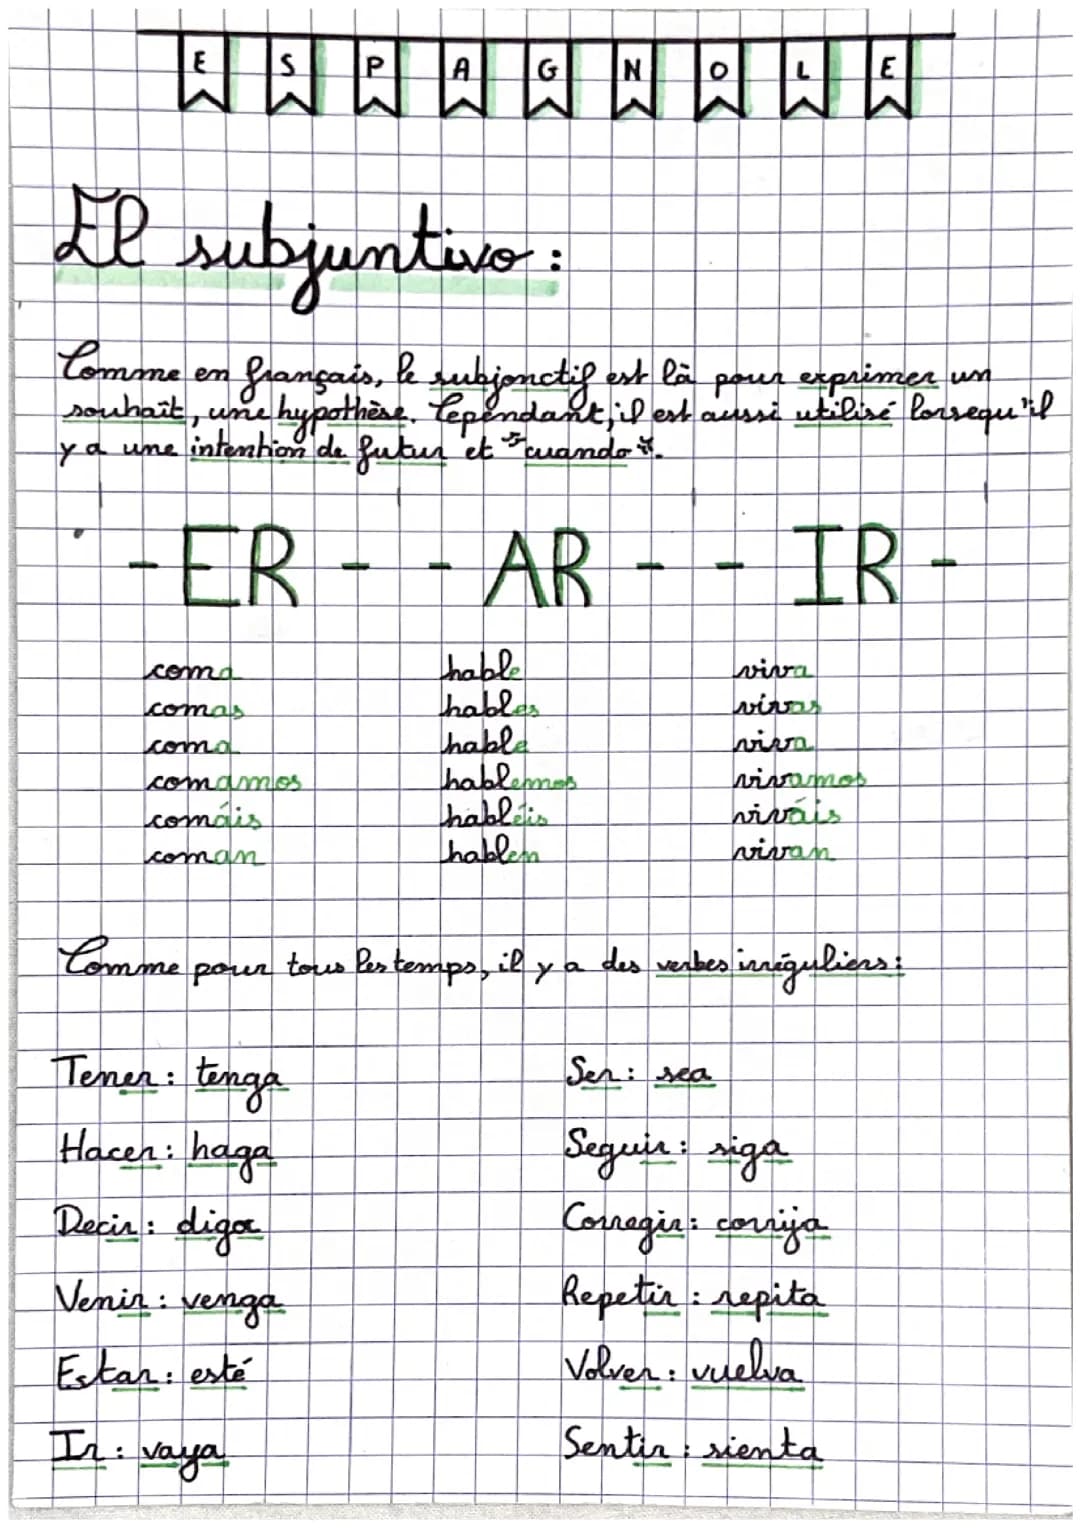 ESPAGNOLE
El subjuntivo :
Comme en français, le subjonctif est là pour exprimer un
souhait, une hypothèse. Cependant, il est aussi utilisé lorsequ'il
y a une intention de futur et *cuando*.
-ER- -AR- -IR-
coma hable viva
comas hables vivas
coma hable viva
comamos hablemos vivamos
comáis habléis viváis
coman hablen vivan
Comme pour tous les temps, il y a des verbes irréguliers :
Tener : tenga Ser : sea
Hacer : haga Seguir : siga
Decir : diga Corregir : corrija
Venir : venga Repetir : repita
Estar : esté Volver : vuelva
Ir : vaya Sentir : sienta